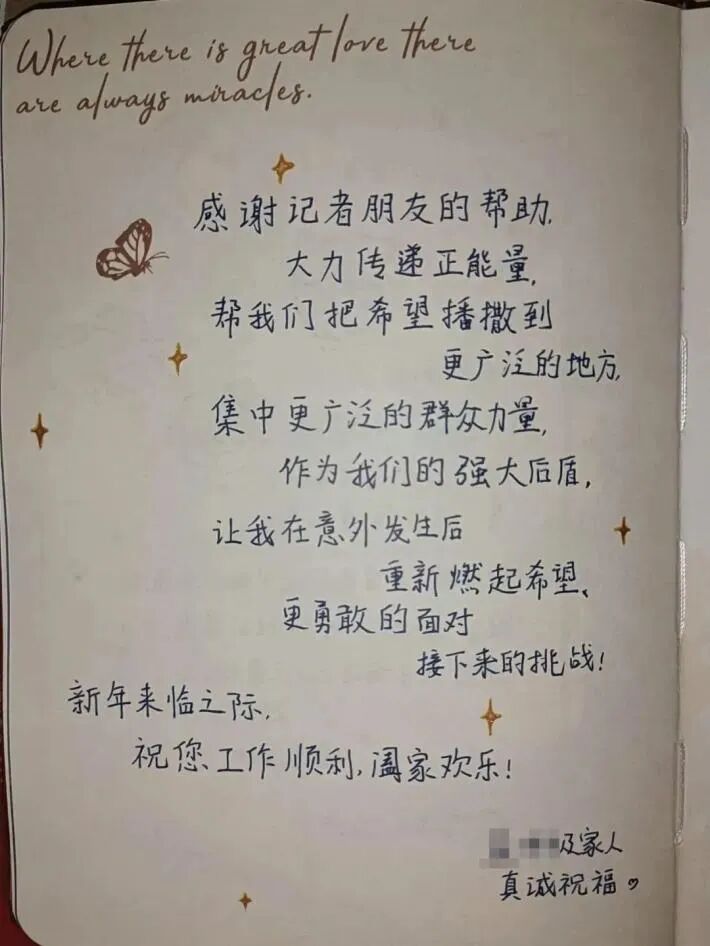 Where there is great love there
are always miracles.
感谢记者朋友的帮助,
大力传递正能量,
帮我们把希望播撒到
更广泛的地方,
集中更广泛的群众力量,
作为我们的强大后盾,
让我在意外发生后
重新燃起希望、
更勇敢的面对
接下来的挑战!
新年来临之际,
祝您工作顺利,阖家欢乐!
及家人
真诚祝福